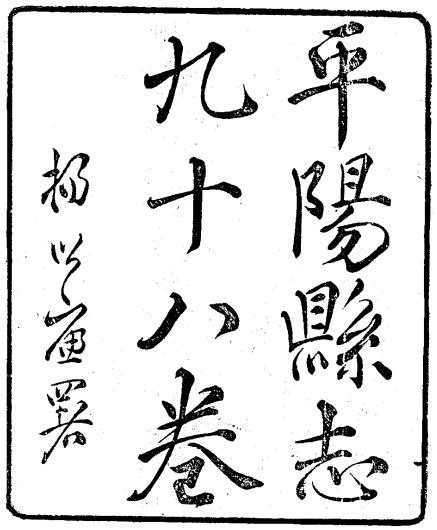 平陽縣志
九十八卷
楊以庸署